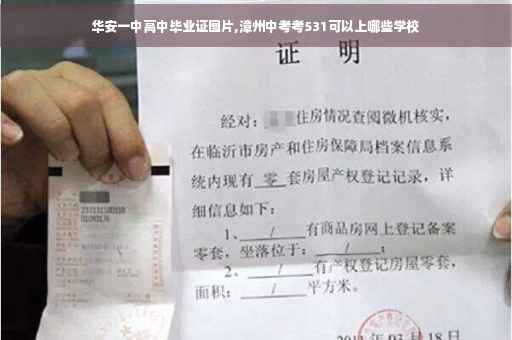 华安一中高中毕业证图片,漳州中考考531可以上哪些学校
证 明
经对: 住房情况查阅微机核实,
在临沂市房产和住房保障局档案信息系
统内现有 零 套房屋产权登记记录, 详
细信息如下:
1、 / 有商品房网上登记备案
零套, 坐落位于: / ;
2、 / 有产权登记房屋零套,
面积: / 平方米。
03 月 18 日